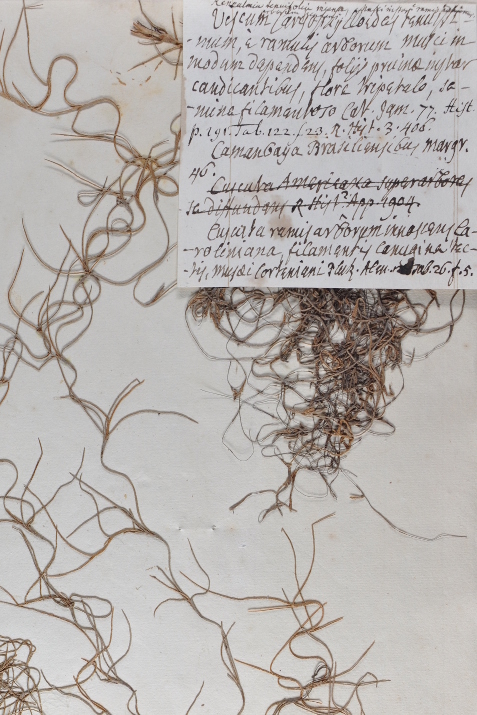 Renealmia
Viscum Caryophylloides tenuissi-
-mum, è ramulis arborum musci in
modum dependens, foliis pruinæ instar
candicantibus, flore tripetalo, se-
-mine filamentoso Cat. Jam. 77. Hist.
p. 191. Tab. 122. f. 23. R. Hist. 3. 406.
Camanbaya Brasiliensibus margr.
46.
Cuscuta Americana super arbores
se diffundens R Hist. App. 1904
Cuscuta ramis arborum innascens Ca-
-roliniana, filamentis lanugine tec-
-tis, Pluk. Alm. 26. f. 5.